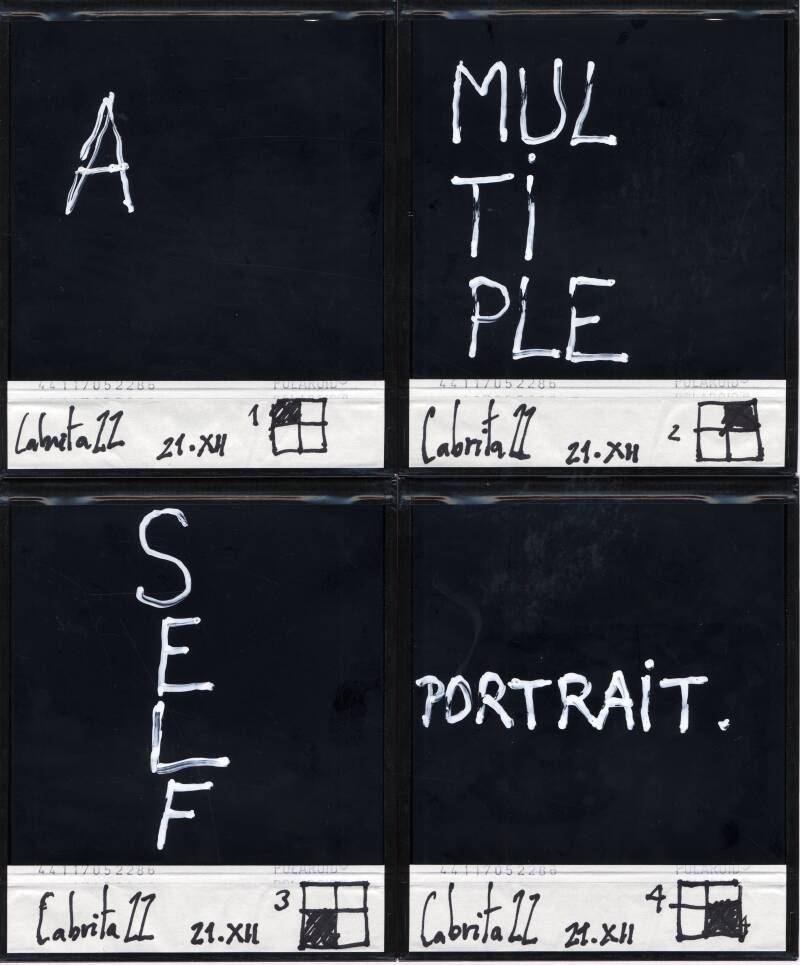 A
MUL
Ti
PLE
44117052286 POLAROID®
Cabrita 22 21.XII 1
44117052286 POLAROID®
Cabrita 22 21.XII 2
S
E
L
F
PORTRAiT.
44117052286 POLAROID®
Cabrita 22 21.XII 3
44117052286 POLAROID®
Cabrita 22 21.XII 4